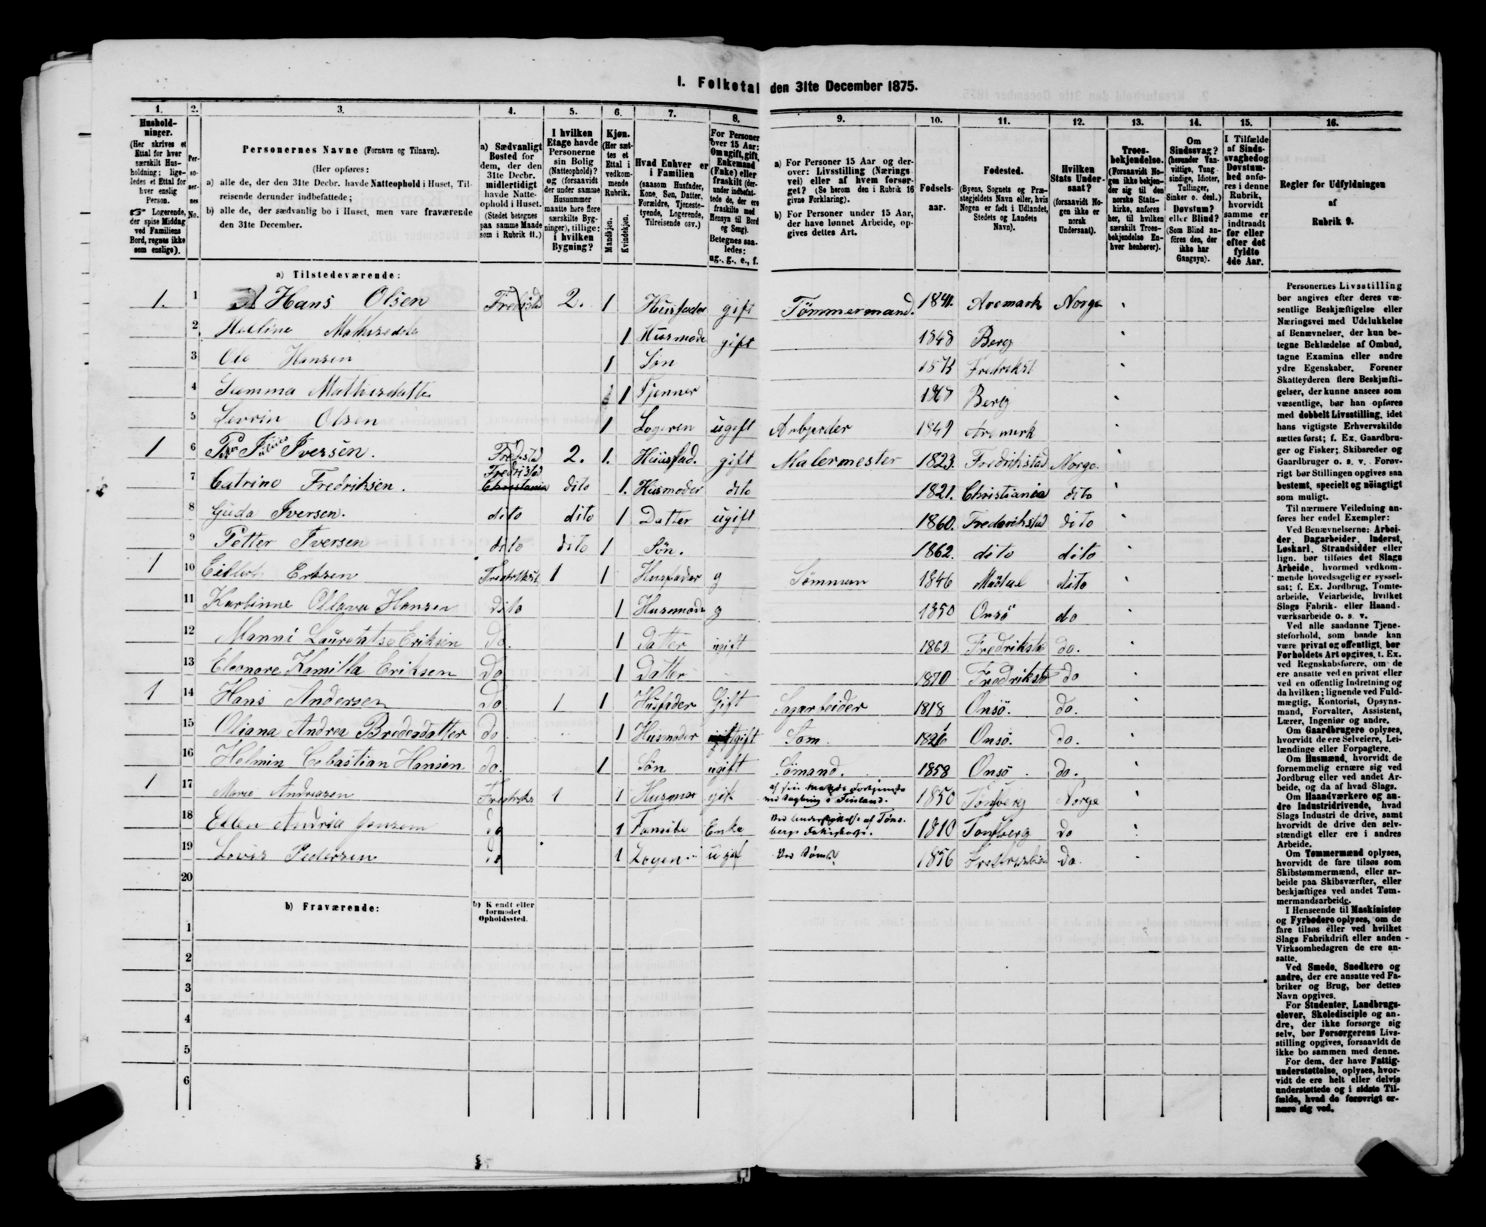 I. Folketal den 31te December 1875.
1. 2. 3. 4. 5. 6. 7. 8. 9. 10. 11. 12. 13. 14. 15. 16.
Hushold-
ninger.
(Her skrives et
Ettal for hver
særskilt Hus-
holdning; lige-
ledes et Ettal for
hver enslig
Person.
Logerende,
der spise Middag
ved Familiens
Bord, regnes ikke
som enslige).
Per-
so-
ner-
nes
No.
Personernes Navne (Fornavn og Tilnavn).
(Her opføres:
a) alle de, der den 31te Decbr. havde Natteophold i Huset, Til-
reisende derunder indbefattede;
b) alle de, der sædvanlig bo i Huset, men vare fraværende
den 31te December.
a) Sædvanligt
Bosted for
dem, der den
31te Decbr.
midlertidigt
havde Natte-
ophold i Huset.
(Stedet betegnes
paa samme Maade
som i Rubrik 11.)
I hvilken
Etage havde
Personerne
sin Bolig
(Natteophold)?
og (forsaavidt
der under samme
Husnummer
maatte høre flere
særskilte Byg-
ninger), tillige:
i hvilken
Bygning?
Kjøn.
(Her sæt-
tes et
Ettal i
vedkom-
mende
Rubrik.
Mandkjøn.
Kvindekjøn.
Hvad Enhver er
i Familien
(saasom Husfader,
Kone, Søn, Datter,
Forældre, Tjeneste-
tyende, Logerende,
Tilreisende osv.)
For Personer
over 15 Aar:
Om ugift, gift,
Enkemand
(Enke) eller
fraskilt (der-
under indbefat-
tede de, der ere
fraskilte med
Hensyn til Bord
og Seng).
Betegnes saa-
ledes:
ug., g., e., f.
a) For Personer 15 Aar og der-
over: Livsstilling (Nærings-
vei) eller af hvem forsør-
get? (Se herom den i Rubrik 16
givne Forklaring).
b) For Personer under 15 Aar,
der have lønnet Arbeide, op-
gives dettes Art.
Fødsels-
aar.
Fødested.
(Byens, Sognets og Præ-
stegjeldets Navn eller, hvis
Nogen er født i Udlandet,
Stedets og Landets
Navn).
Hvilken
Stats Under-
saat?
(forsaavidt No-
gen ikke er
norsk
Undersaat).
Troes-
bekjendelse.
(Forsaavidt No-
gen ikke bekjen-
der sig til den
norske Stats-
kirke, anføres
her, til hvilken
særskilt Troes-
bekjendelse En-
hver henhører).
Om
Sindssvag?
(herunder Van-
vittige, Tung-
sindige, Idioter,
Tullinger,
Sinker o. desl.)
Døvstum?
eller Blind?
(Som Blind an-
føres den, der
ikke har
Gangsyn).
I Tilfælde
af Sinds-
svaghed og
Døvstum-
hed anfø-
res i denne
Rubrik,
hvorvidt
samme er
indtraadt
før eller
efter det
fyldte
4de Aar.
Regler for Udfyldningen
af
Rubrik 9.
a) Tilstedeværende:
1. 1 Hans Olsen 2. 1 Husfader gift Tømmermand. 1841. Aremark Norge
2 1 Husmode gift 1848 Berg
3 Ole Hansen 1 Søn 1873 Fredrikst
4 1 Tjener 1867 Berg
5 Olsen 1 ugift 1849 Aremark
1 6 Iversen. Fredrstad 2. 1. Husfad. gift Malermester 1823. Fredrikstad Norge.
7 Catrine Fredriksen. Fredristad dito 1. Husmoder dito 1821. Christiania dito
8 Iversen. dito dito 1 Datter ugift 1860. Frederikstad dito
9 Petter Iversen dito dito 1 Søn. 1862. dito dito
1 10 1 1 Husfader g 1846 dito
11 Hansen dito 1 Husmode g 1850 Onsö do
12 Do. 1 Datter 1862 do.
13 Kamilla Eriksen Do 1 Datter 1870 do
1 14 Hans Andersen Do 1 1 Husfader Gift Sagarbeider 1818 Onsö. do.
15 Oliana Andrea do 1 Husmoder gift 1826 Onsö. do.
16 Hansen do. 1 Søn ugift Sømand. 1858 Onsö do.
1 17 Marie 1 1 1850 Tønsberg Norge
18 do 1 Enke 1810 Tonsberg do
19 Pedersen do 1 1856 do.
20
b) Fraværende:
b) Kjendt eller
formodet
Opholdssted.
1
2
3
4
5
6
Personernes Livsstilling
bør angives efter deres væ-
sentlige Beskjæftigelse eller
Næringsvei med Udelukkelse
af Benævnelser, der kun be-
tegne Beklædelse af Ombud,
tagne Examina eller andre
ydre Egenskaber. Forener
Skatteyderen flere Beskjæfti-
gelser, der kunne ansees som
væsentlige, bør han opføres
med dobbelt Livsstilling, idet
hans vigtigste Erhvervskilde
sættes først; f. Ex. Gaardbru-
ger og Fisker; Skibsreder og
Gaardbruger o. s. v. Forøv-
rigt bør Stillingen opgives saa
bestemt, specielt og nøiagtigt
som muligt.
Til nærmere Veiledning an-
føres her endel Exempler:
Ved Benævnelserne: Arbei-
der, Dagarbeider, Inderst,
Løskarl, Strandsidder eller
lign. bør tilføies det Slags
Arbeide, hvormed vedkom-
mende hovedsagelig er syssel-
sat; f. Ex. Jordbrug, Tomte-
arbeide, Veiarbeide, hvilket
Slags Fabrik- eller Haand-
værksarbeide o. s. v.
Ved alle saadanne Tjene-
steforhold, som baade kan
være privat og offentligt, bør
Forholdets Art opgives, t. Ex.
ved Regnskabsførere, om de
ere ansatte ved en privat eller
ved en offentlig Indretning og
da hvilken; lignende ved Fuld-
mægtig, Kontorist, Opsyns-
mand, Forvalter, Assistent,
Lærer, Ingeniør og andre.
Om Gaardbrugere oplyses,
hvorvidt de ere Selveiere, Lei-
lændinge eller Forpagtere.
Om Husmænd, hvorvidt de
fornemmelig ernære sig ved
Jordbrug eller ved andet Ar-
beide, og da af hvad Slags.
Om Haandværkere og an-
dre Industridrivende, hvad
Slags Industri de drive, samt
hvorvidt de drive den selv-
stændigt eller ere i andres
Arbeide.
Om Tømmermænd oplyses,
hvorvidt de fare tilsøs som
Skibstømmermænd, eller ar-
beide paa Skibsværfter, eller
beskjæftiges ved andet Tøm-
mermandsarbeide.
I Henseende til Maskinister
og Fyrbødere oplyses, om de
fare tilsøs eller ved hvilket
Slags Fabrikdrift eller anden
Virksomhedsgren de ere an-
satte.
Ved Smede, Snedkere og
andre, der ere ansatte ved Fa-
briker og Brug, bør dettes
Navn opgives.
For Studenter, Landbrugs-
elever, Skoledisciple og an-
dre, der ikke forsørge sig
selv, bør Forsørgerens Livs-
stilling opgives, forsaavidt de
ikke bo sammen med denne.
For dem, der have Fattig-
understøttelse, oplyses, hvor-
vidt de ere helt eller delvis
understøttede og i sidste Til-
fælde, hvad de forøvrigt er-
nære sig ved.